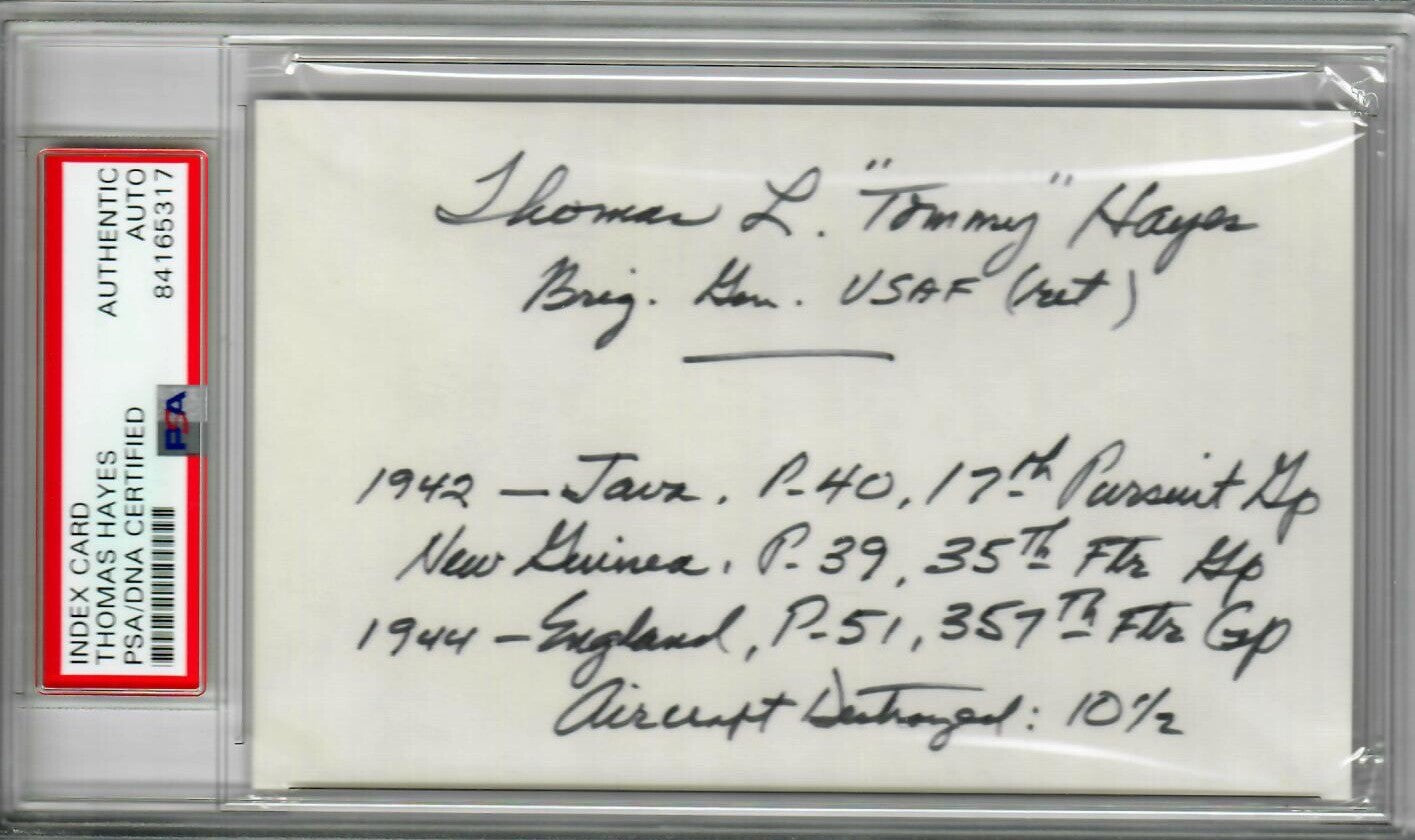 INDEX CARD
THOMAS HAYES
PSA/DNA CERTIFIED
AUTHENTIC
AUTO
84165317
PSA
Thomas L. "Tommy" Hayes
Brig. Gen. USAF (ret)
1942 — Java. P-40, 17th Pursuit Gp
New Guinea. P-39, 35Th Ftr Gp
1944 — England, P-51, 357Th Ftr Gp
Aircraft Destroyed: 10 1/2